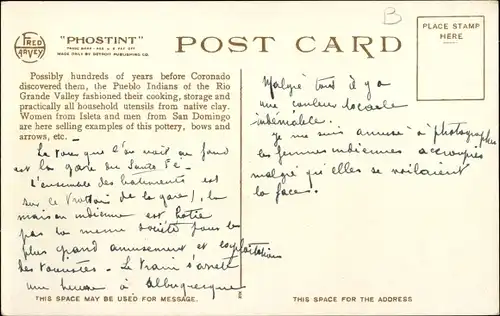 FRED HARVEY
"PHOSTINT"
TRADE MARK - REG. U.S. PAT. OFF.
MADE ONLY BY DETROIT PUBLISHING CO.
POST CARD
B
PLACE STAMP
HERE
Possibly hundreds of years before Coronado
discovered them, the Pueblo Indians of the Rio
Grande Valley fashioned their cooking, storage and
practically all household utensils from native clay.
Women from Isleta and men from San Domingo
are here selling examples of this pottery, bows and
arrows, etc.
La tour que l'on voit au fond
est la gare du Santa Fé
L'ensemble des bâtiments est
sur le trottoir de la gare/, la
maison indienne est
pas la même société pour le
plus grand amusement et exploitation
des touristes - Le train s'arrête
une heure à Albuquerque
Malgré tout il y a
une couleur locale
indéniable.
Je me suis amusé à photographier
les femmes indiennes accroupies
malgré qu'elles se voilaient
la face.
THIS SPACE MAY BE USED FOR MESSAGE.
THIS SPACE IS FOR THE ADDRESS